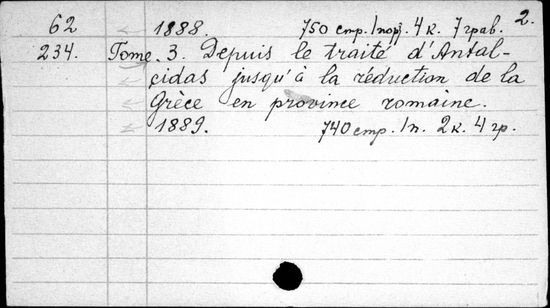 2.
62 1888. 750 стр. 1 порт. 4 к. 7 грав.
234. Tome. 3. Depuis le traité d'Antal-
cidas jusqu'à la réduction de la
Grèce en province romaine.
1889. 740 стр. 1 п. 2 к. 4 гр.